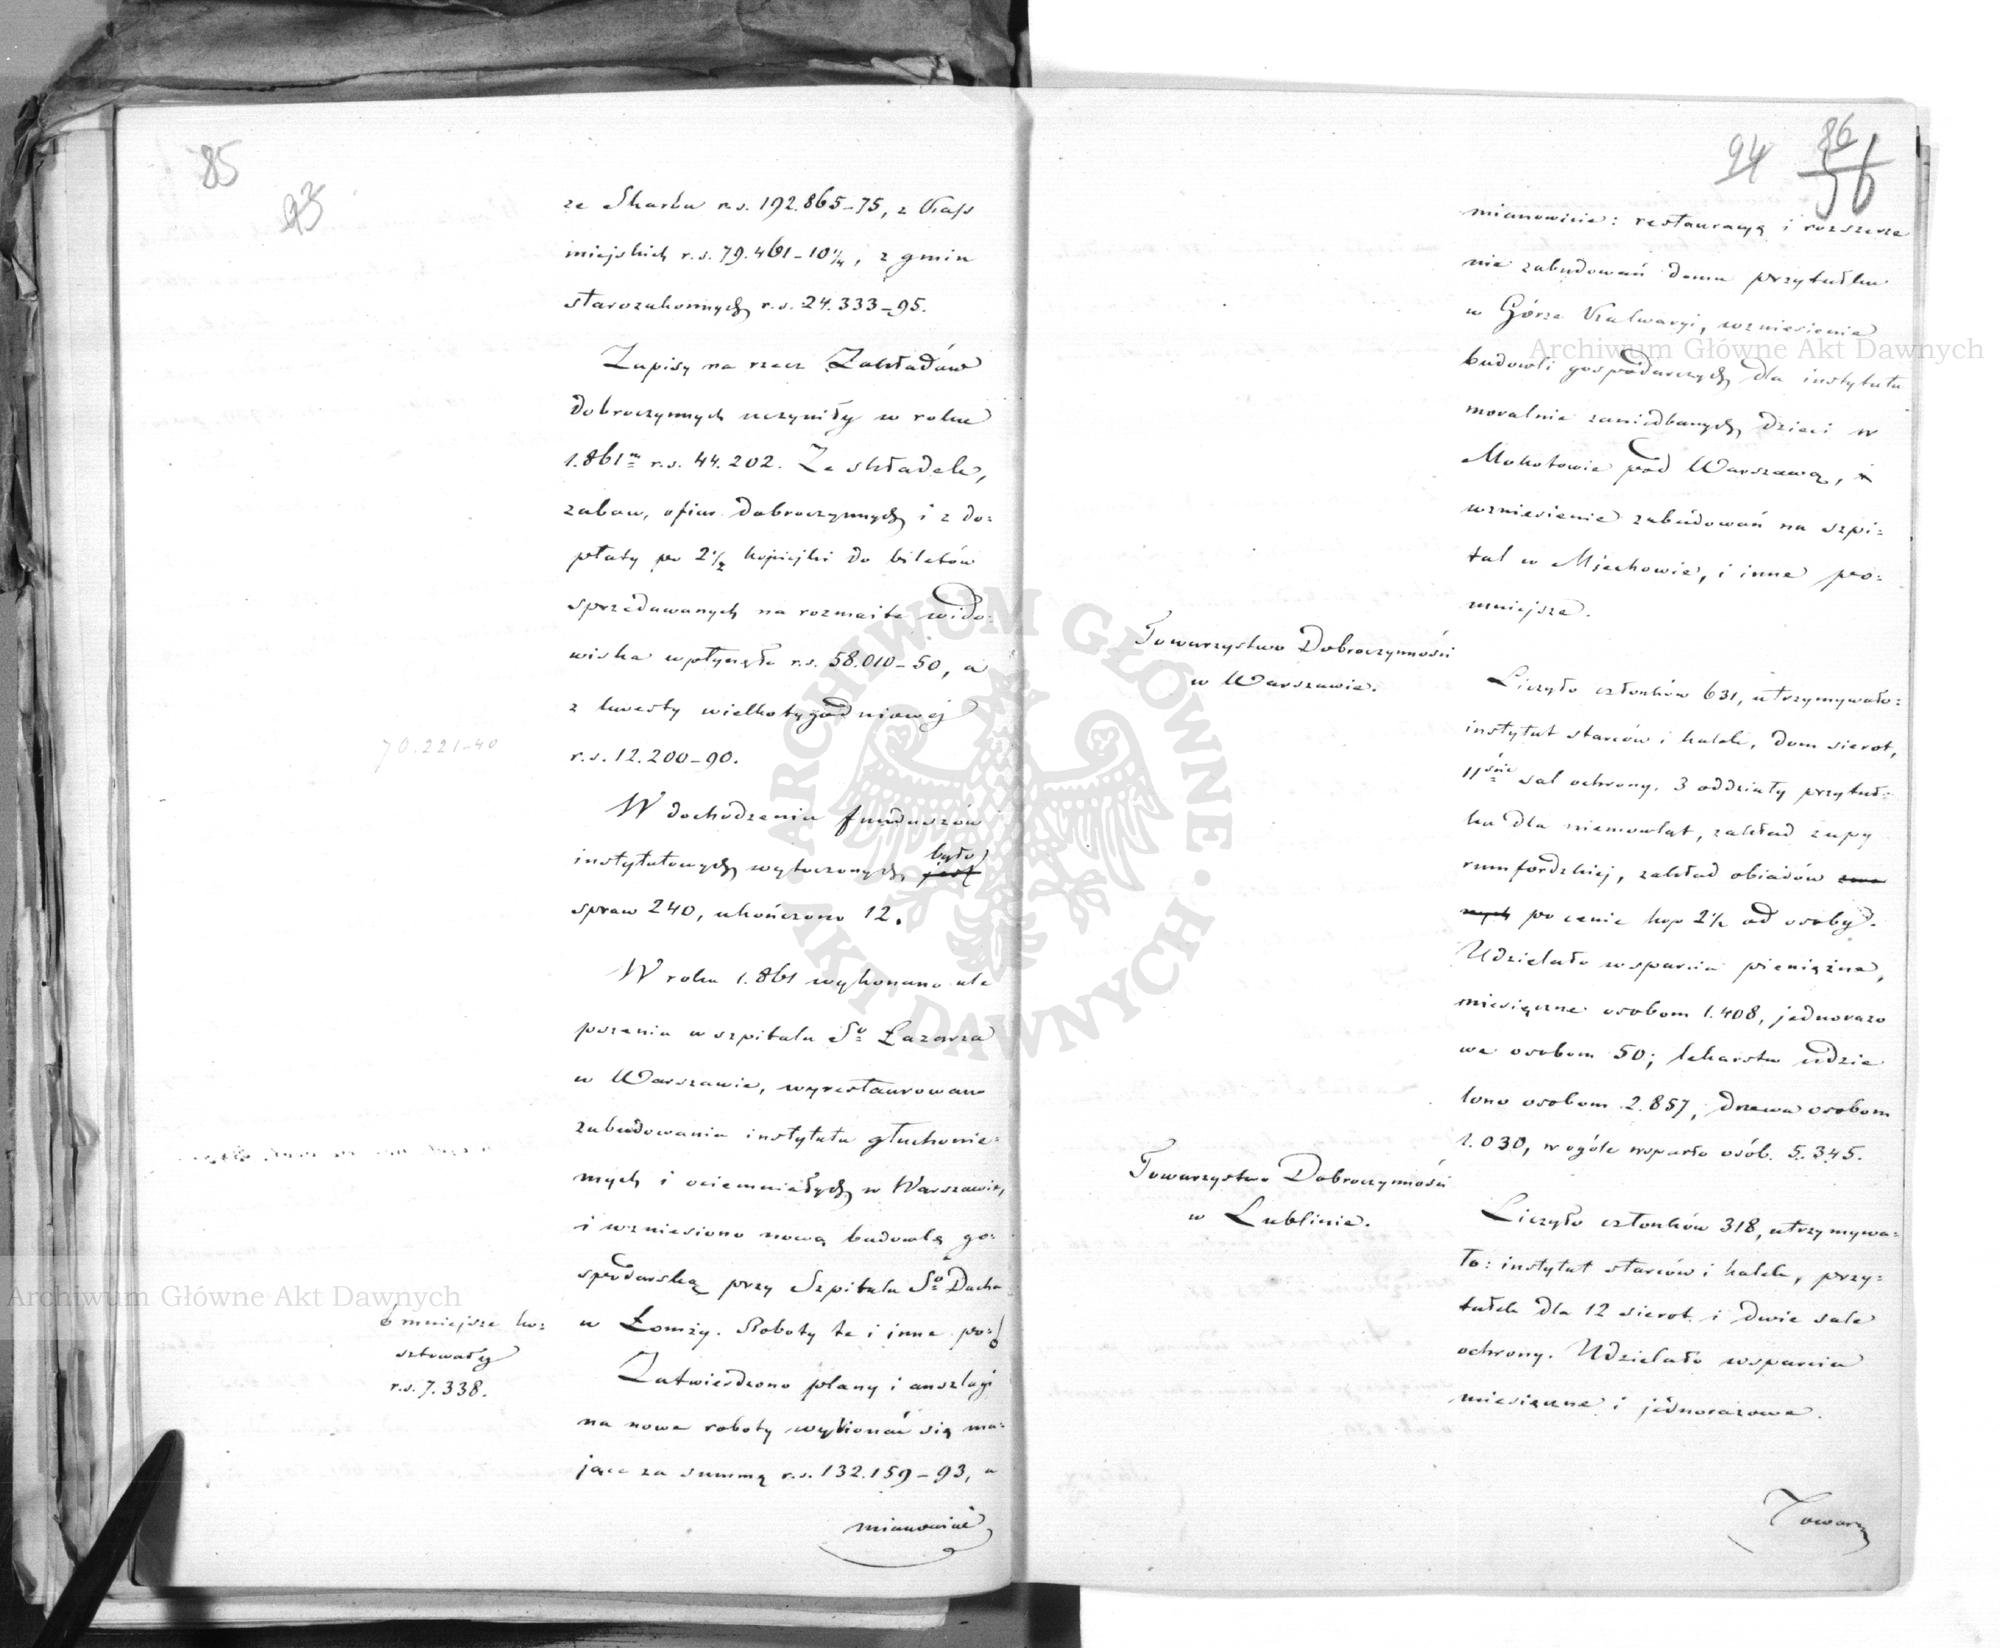 85
93
ze Skarbu r.s. 192.865-75, z Kass
miejskich r.s. 79.461-10¼, z gmin
starozakonnych r.s. 24.333-95.
Zapisy na rzecz Zakładów
dobroczynnych uczyniły w roku
1.861m r.s. 44.202. Ze składek,
zabaw, ofiar dobroczynnych i z do=
płaty po 2½ kopiejki do biletów
sprzedawanych na rozmaite wido=
wiska wpłynęło r.s. 58.010-50, a
z kwesty wielkotygodniowej
70.221-40
r.s. 12.200-90.
W dochodzeniu funduszów
było
instytutowych wytoczonych jest
spraw 240, ukończono 12.
W roku 1.861 wykonano ule
pszenia w szpitalu So Łazarza
w Warszawie, wyrestaurowano
zabudowania instytutu głuchonie=
mych i ociemniałych w Warszawie,
i wzniesiono nową budowlę go=
spodarską przy Szpitalu So Ducha
w Łomży. Roboty te i inne po=
mniejsze ko=
sztowały
r.s. 7.338.
Zatwierdzono plany i anszlagi
na nowe roboty wykonać się ma=
jące za summę r.s. 132.159-93, a
mianowicie
94
86
56
mianowicie: restauracyą i rozszerze
nie zabudowań domu przytułku
w Górze Kalwaryi, wzniesienie
budowli gospodarczych dla instytutu
moralnie zaniedbanych dzieci w
Mokotowie pod Warszawą, i
wzniesienie zabudowań na szpi=
tal w Miechowie, i inne po=
mniejsze.
Towarzystwo Dobroczynności
w Warszawie.
Liczyło członków 631, utrzymywało=
instytut starców i kalek, dom sierot,
11ście sal ochrony, 3 oddziały przytuł=
ku dla niemowląt, zakład zupy
rumfordzkiej, zakład obiadów
po cenie kop 2½ od osoby.
Udzielało wsparcia pieniężne,
miesięczne osobom 1.408, jednorazo
we osobom 50; lekarstw udzie
lono osobom 2.857, drzewa osobom
1.030, w ogóle wsparło osób 5.345.
Towarzystwo Dobroczynności
w Lublinie.
Liczyło członków 318, utrzymywa=
ło: instytut starców i kalek, przy=
tułek dla 12 sierot i dwie sale
ochrony. Udzielało wsparcia
miesięczne i jednorazowe.
Towarz
Archiwum Główne Akt Dawnych
Archiwum Główne Akt Dawnych
ARCHIWUM GŁÓWNE AKT DAWNYCH